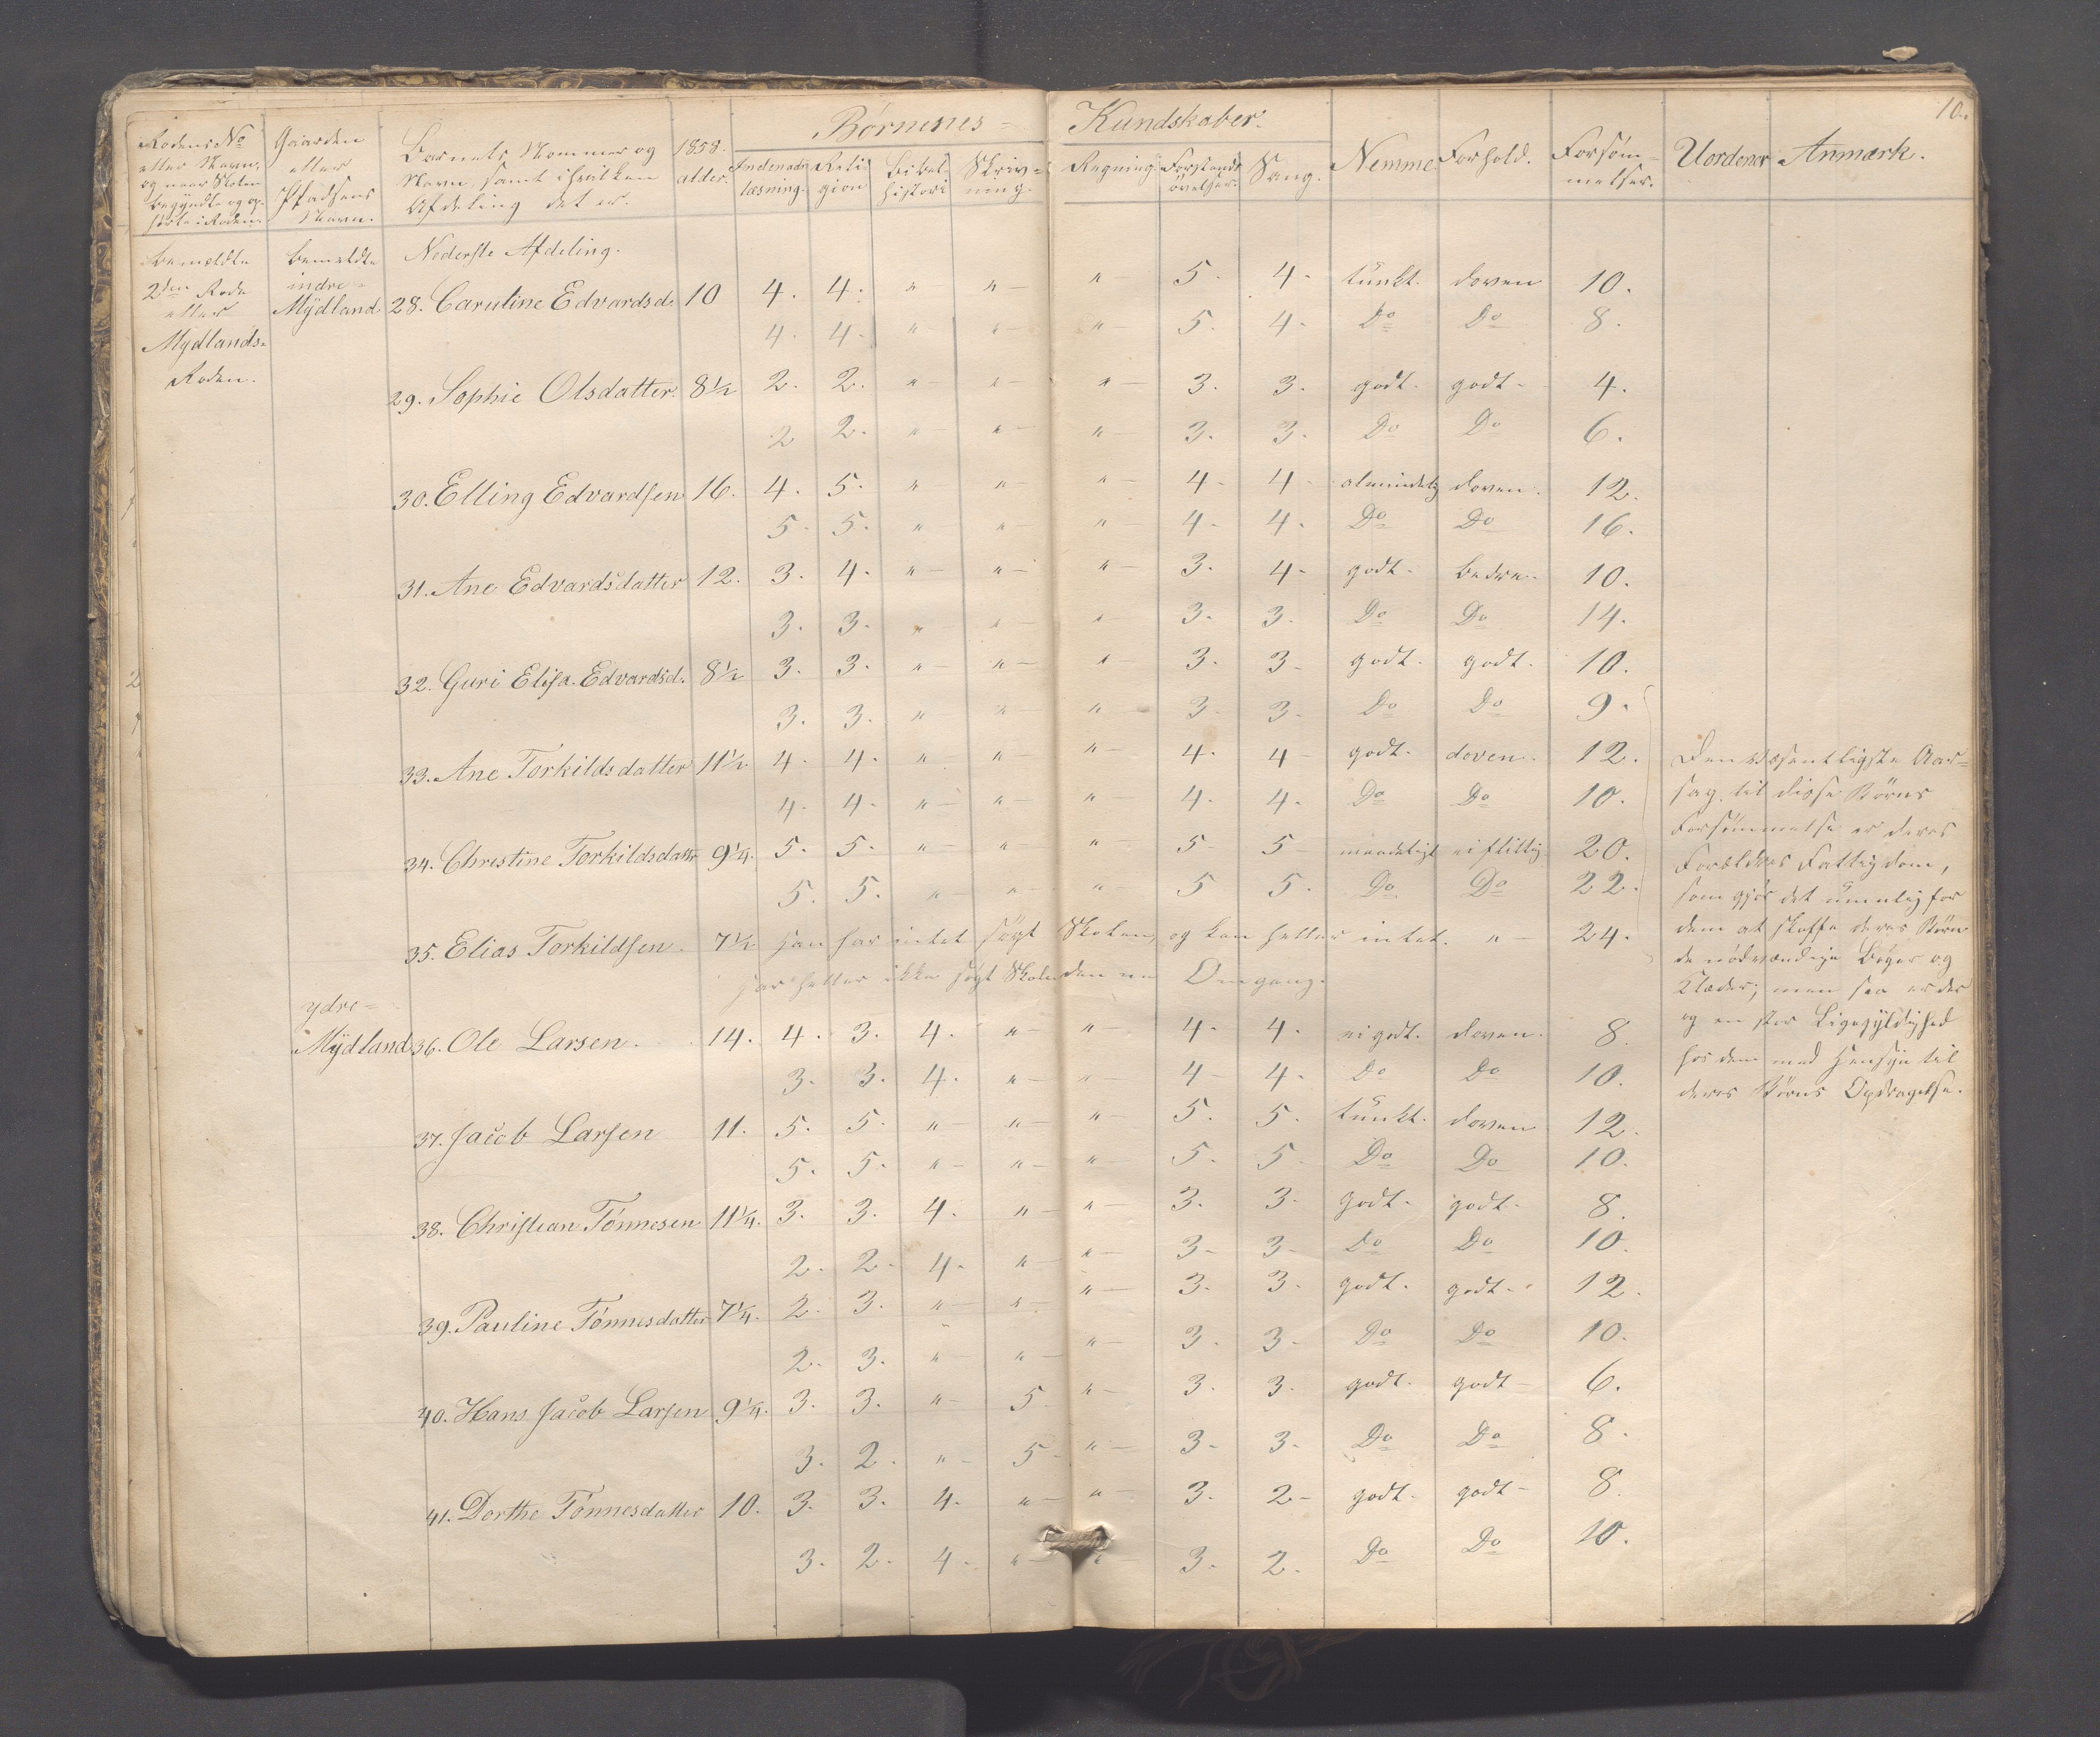 10.
Børnenes= Kundskaber.
Rodens No Gaarden Barnets Nommer og 1858.
eller Navn, eller Navn, samt i hvilken alder. Indenads Reli Bibel Skriv= Regning Forstands Sang. Nemme. Forhold. Forsøm= Uordener Anmærk.
og naar Skolen Pladsens Afdeling det er. læsning. gion histori ning. øvelser. melser.
begyndte og op= Navn.
hørte i Roden.
Bemeldte bemeldte Nederste Afdeling.
2den Rode indre=
eller Mÿdland 28. Carutine Edvardsd. 10 4. 4. " " " 5. 4. tungt. doven 10.
Mydlands= 4. 4. " " " 5. 4. Do Do 8.
Roden.
29. Sophie Olsdatter. 8½ 2. 2. " " " 3. 3. godt. godt. 4.
2 2. " " " 3. 3. Do Do 6.
30. Elling Edvardsen 16. 4. 5. " " " 4. 4 almindelig doven. 12.
5. 5. " " " 4. 4. Do Do 16.
31. Ane Edvardsdatter 12. 3. 4. " " " 3. 4. godt. bedre. 10.
3. 3. " " " 3. 3. Do Do 14.
32. Guri Elisa. Edvardsd. 8½ 3. 3. " " " 3. 3. godt. godt. 10.
3. 3. " " " 3. 3. Do Do 9.
33. Ane Torkildsdatter 11½ 4. 4. " " " 4. 4 godt. doven. 12.
4. 4. " " " 4. 4. Do Do 10.
34. Christine Torkildsdattr 9¼. 5. 5. " " " 5 5 maadeligt ei flittig 20.
5. 5. " " " 5 5. Do Do 22.
35. Elias Torkildsen. 7½ han har intet søgt Skolen, og kan heller intet. " 24.
har heller ikke søgt Skolen denne Omgang.
ydre=
Mÿdland 36. Ole Larsen. 14. 4. 3. 4. " " 4. 4. ei godt. doven. 8.
3. 3. 4. " " 4 4. Do Do 10.
37. Jacob Larsen 11. 5. 5. " " " 5. 5. tungt. doven 12.
5. 5. " " " 5. 5. Do Do 10.
38. Christian Tönnesen 11¼. 3. 3. 4. " " 3. 3. godt. godt. 8.
2. 2. 4. " " 3. 3. Do Do 10.
39. Pauline Tönnesdatter 7¼. 2. 3. " " " 3. 3. godt. godt. 12.
2. 3. " " " 3. 3. Do Do 10.
40. Hans Jacob Larsen 9¼. 3. 3. " 5. " 3. 3. godt. godt 6.
3. 2. " 5 " 3. 3. Do Do 8.
41. Dorthe Tönnesdatter 10. 3. 3. 4. " " 3. 2. godt. godt 8.
3. 2. 4. " " 3. 2. Do Do 10.
Den væsentligste Aar=
sag til disse Børns
Forsømmelse er deres
Forældres Fattigdom,
som gjør det umulig for
dem at skaffe deres Børn
de nødvændige Bøger og
Klæder; men saa er der
og en stor Ligegyldighed
hos dem med Hensyn til
deres Børns Opdragelse.